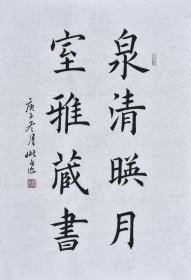 泉清暎月
室雅藏書
庚子冬月